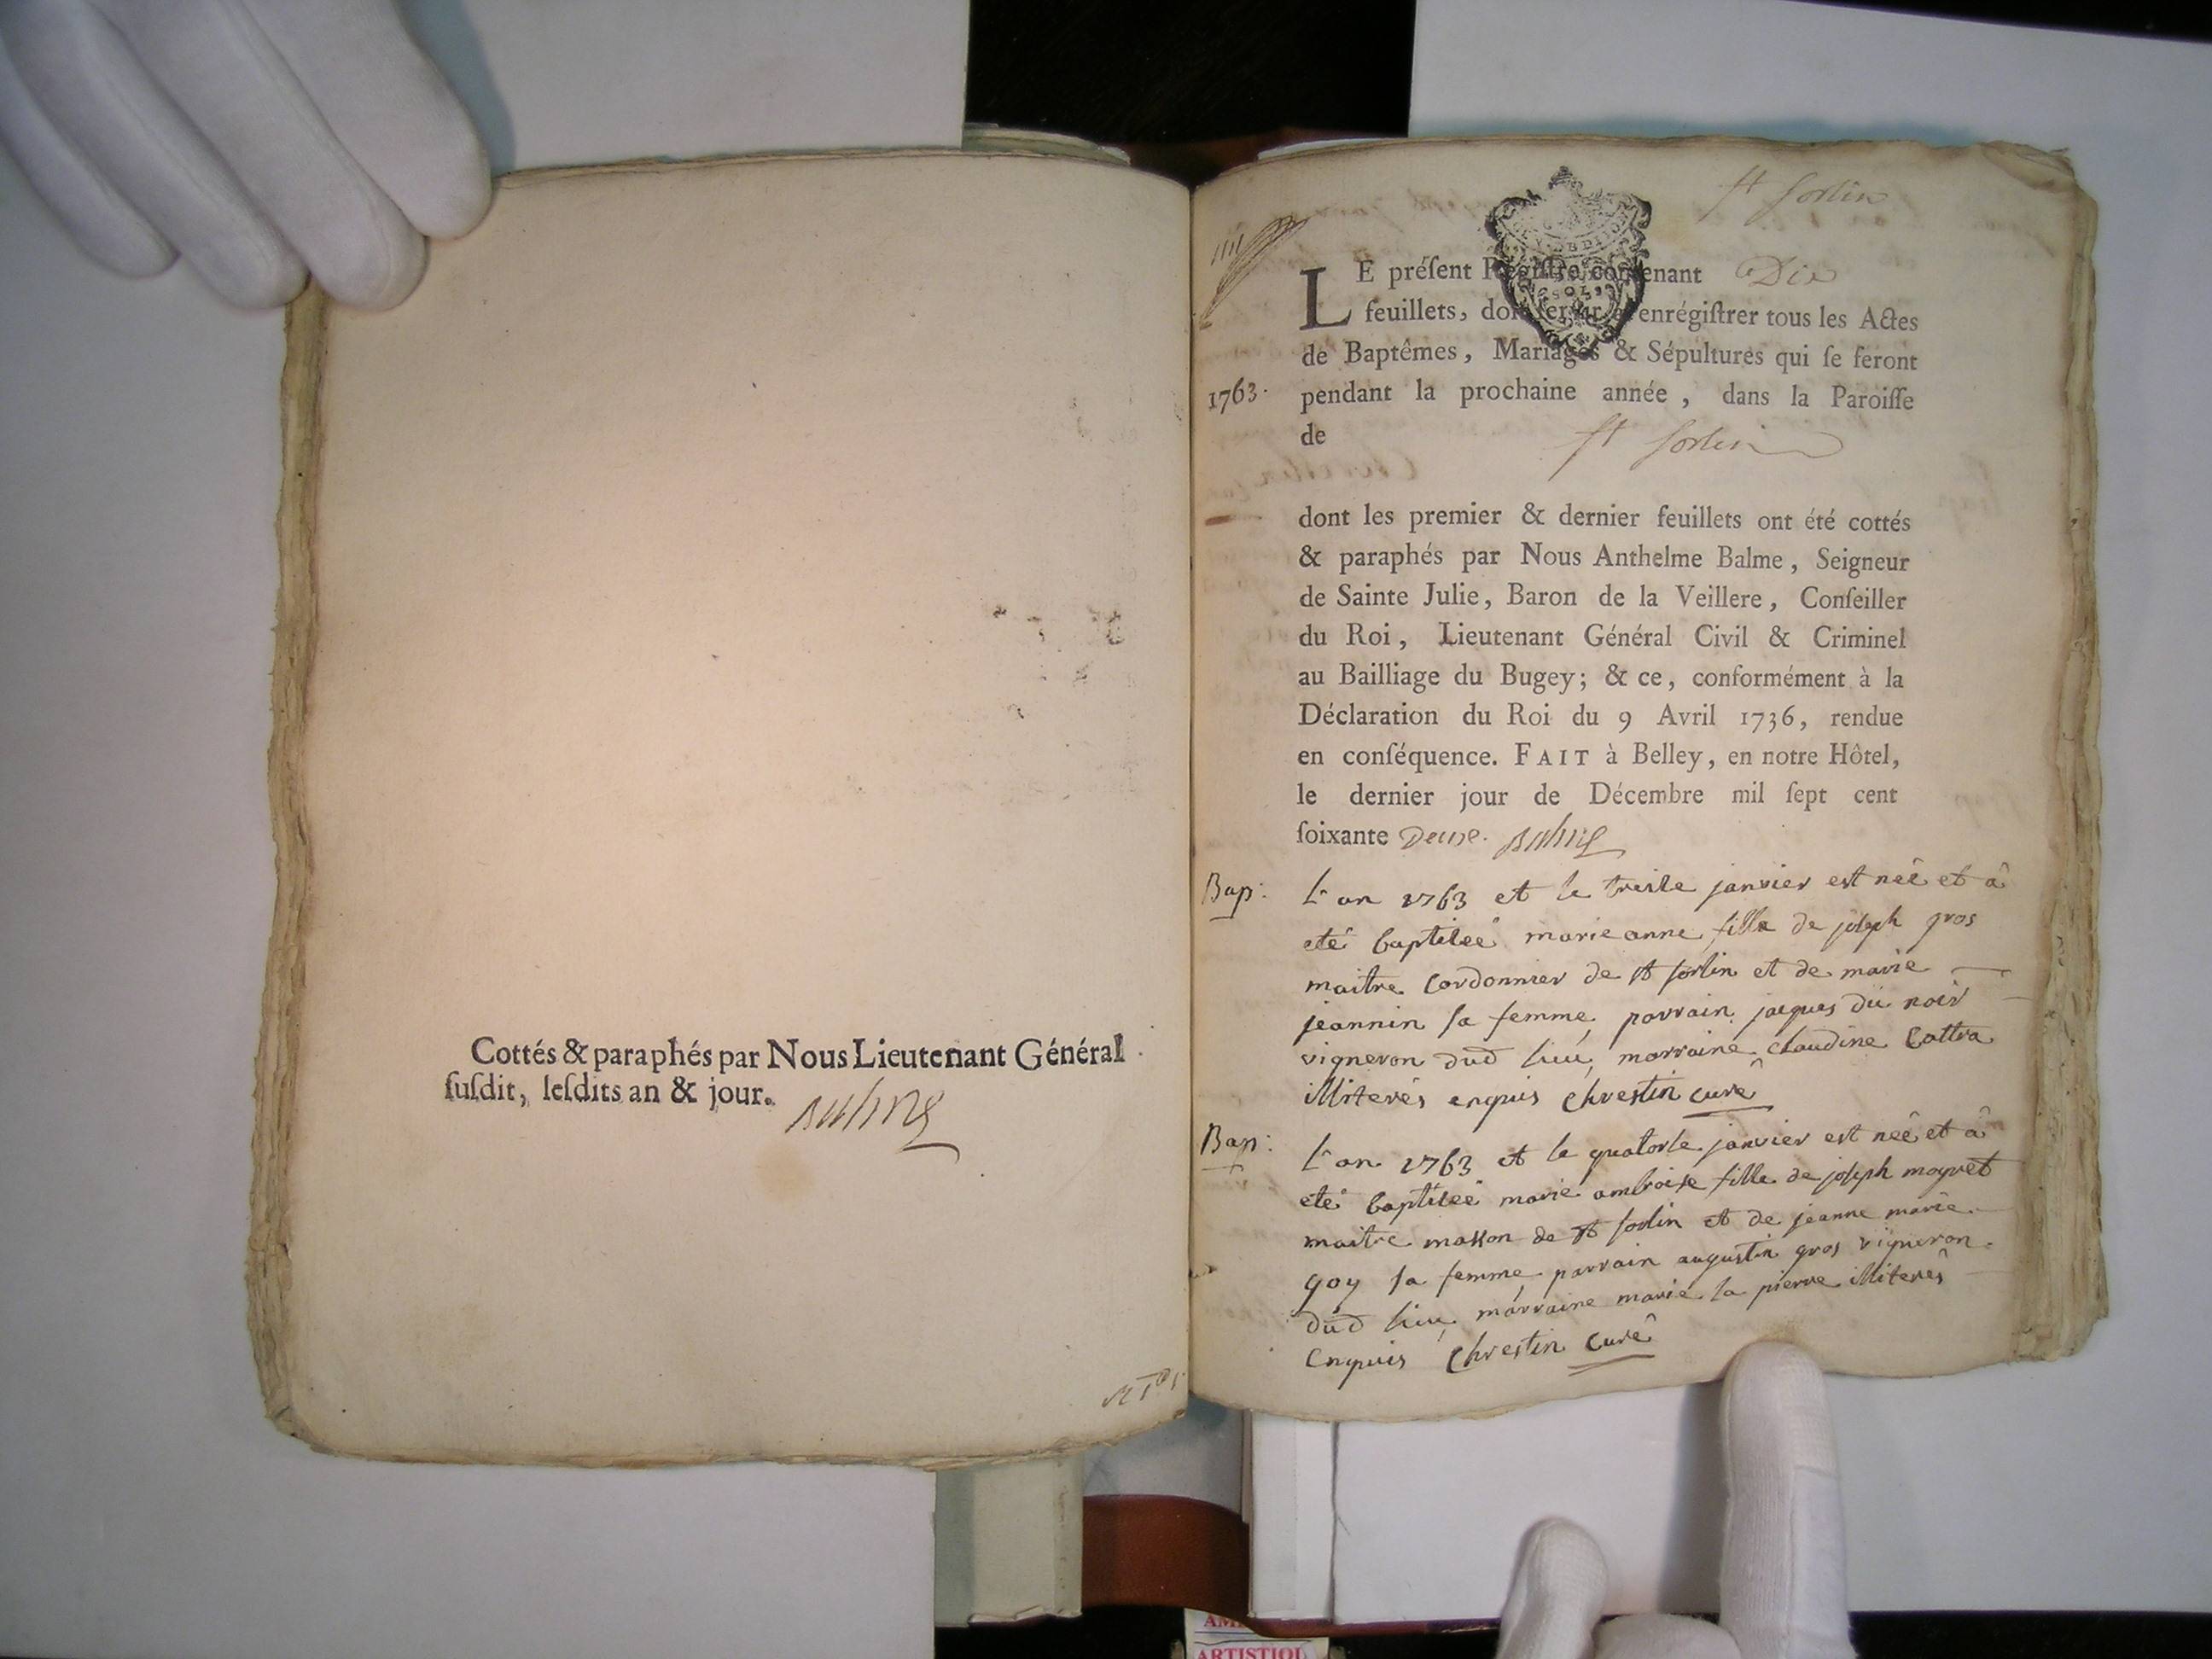 Cottés & paraphés par Nous Lieutenant Général
ſuſdit, leſdits an & jour.
st sorlin
LE préſent Regiſtre contenant Dix
feuillets, doit ſervir à enrégiſtrer tous les Actes
de Baptêmes, Mariages & Sépultures qui ſe feront
1763.
pendant la prochaine année, dans la Paroiſſe
de st sorlin
dont les premier & dernier feuillets ont été cottés
& paraphés par Nous Anthelme Balme, Seigneur
de Sainte Julie, Baron de la Veillere, Conſeiller
du Roi, Lieutenant Général Civil & Criminel
au Bailliage du Bugey; & ce, conformément à la
Déclaration du Roi du 9 Avril 1736, rendue
en conſéquence. FAIT à Belley, en notre Hôtel,
le dernier jour de Décembre mil ſept cent
ſoixante Deux. Balme
Bap:
L'an 1763 et le treize janvier est neê et â
eté baptiseé marie anne fille de joseph gros
maitre Cordonnier de st sorlin et de marie
jeannin sa femme, parrain jacques du noir
vigneron dud lieu, marraine claudine Cattra
illiterés enquis Chrestin curé
Bap:
L'an 1763 et le quatorze janvier est neê et â
eté baptiseé marie ambroise fille de joseph moyret
maitre masson de st sorlin et de jeanne marie
goy sa femme, parrain augustin gros vigneron
dud lieu, marraine marie la pierre illiterés
Enquis Chrestin Curé
AM
ARTISTIQU